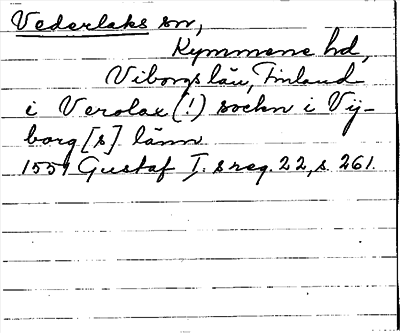 Vederlaks sn,
Kymmene hd,
Viborgs län, Finland
i Verolax (!) sockn i Vij-
borg[s] länn
1559 Gustaf I:s reg. 22, s. 261.